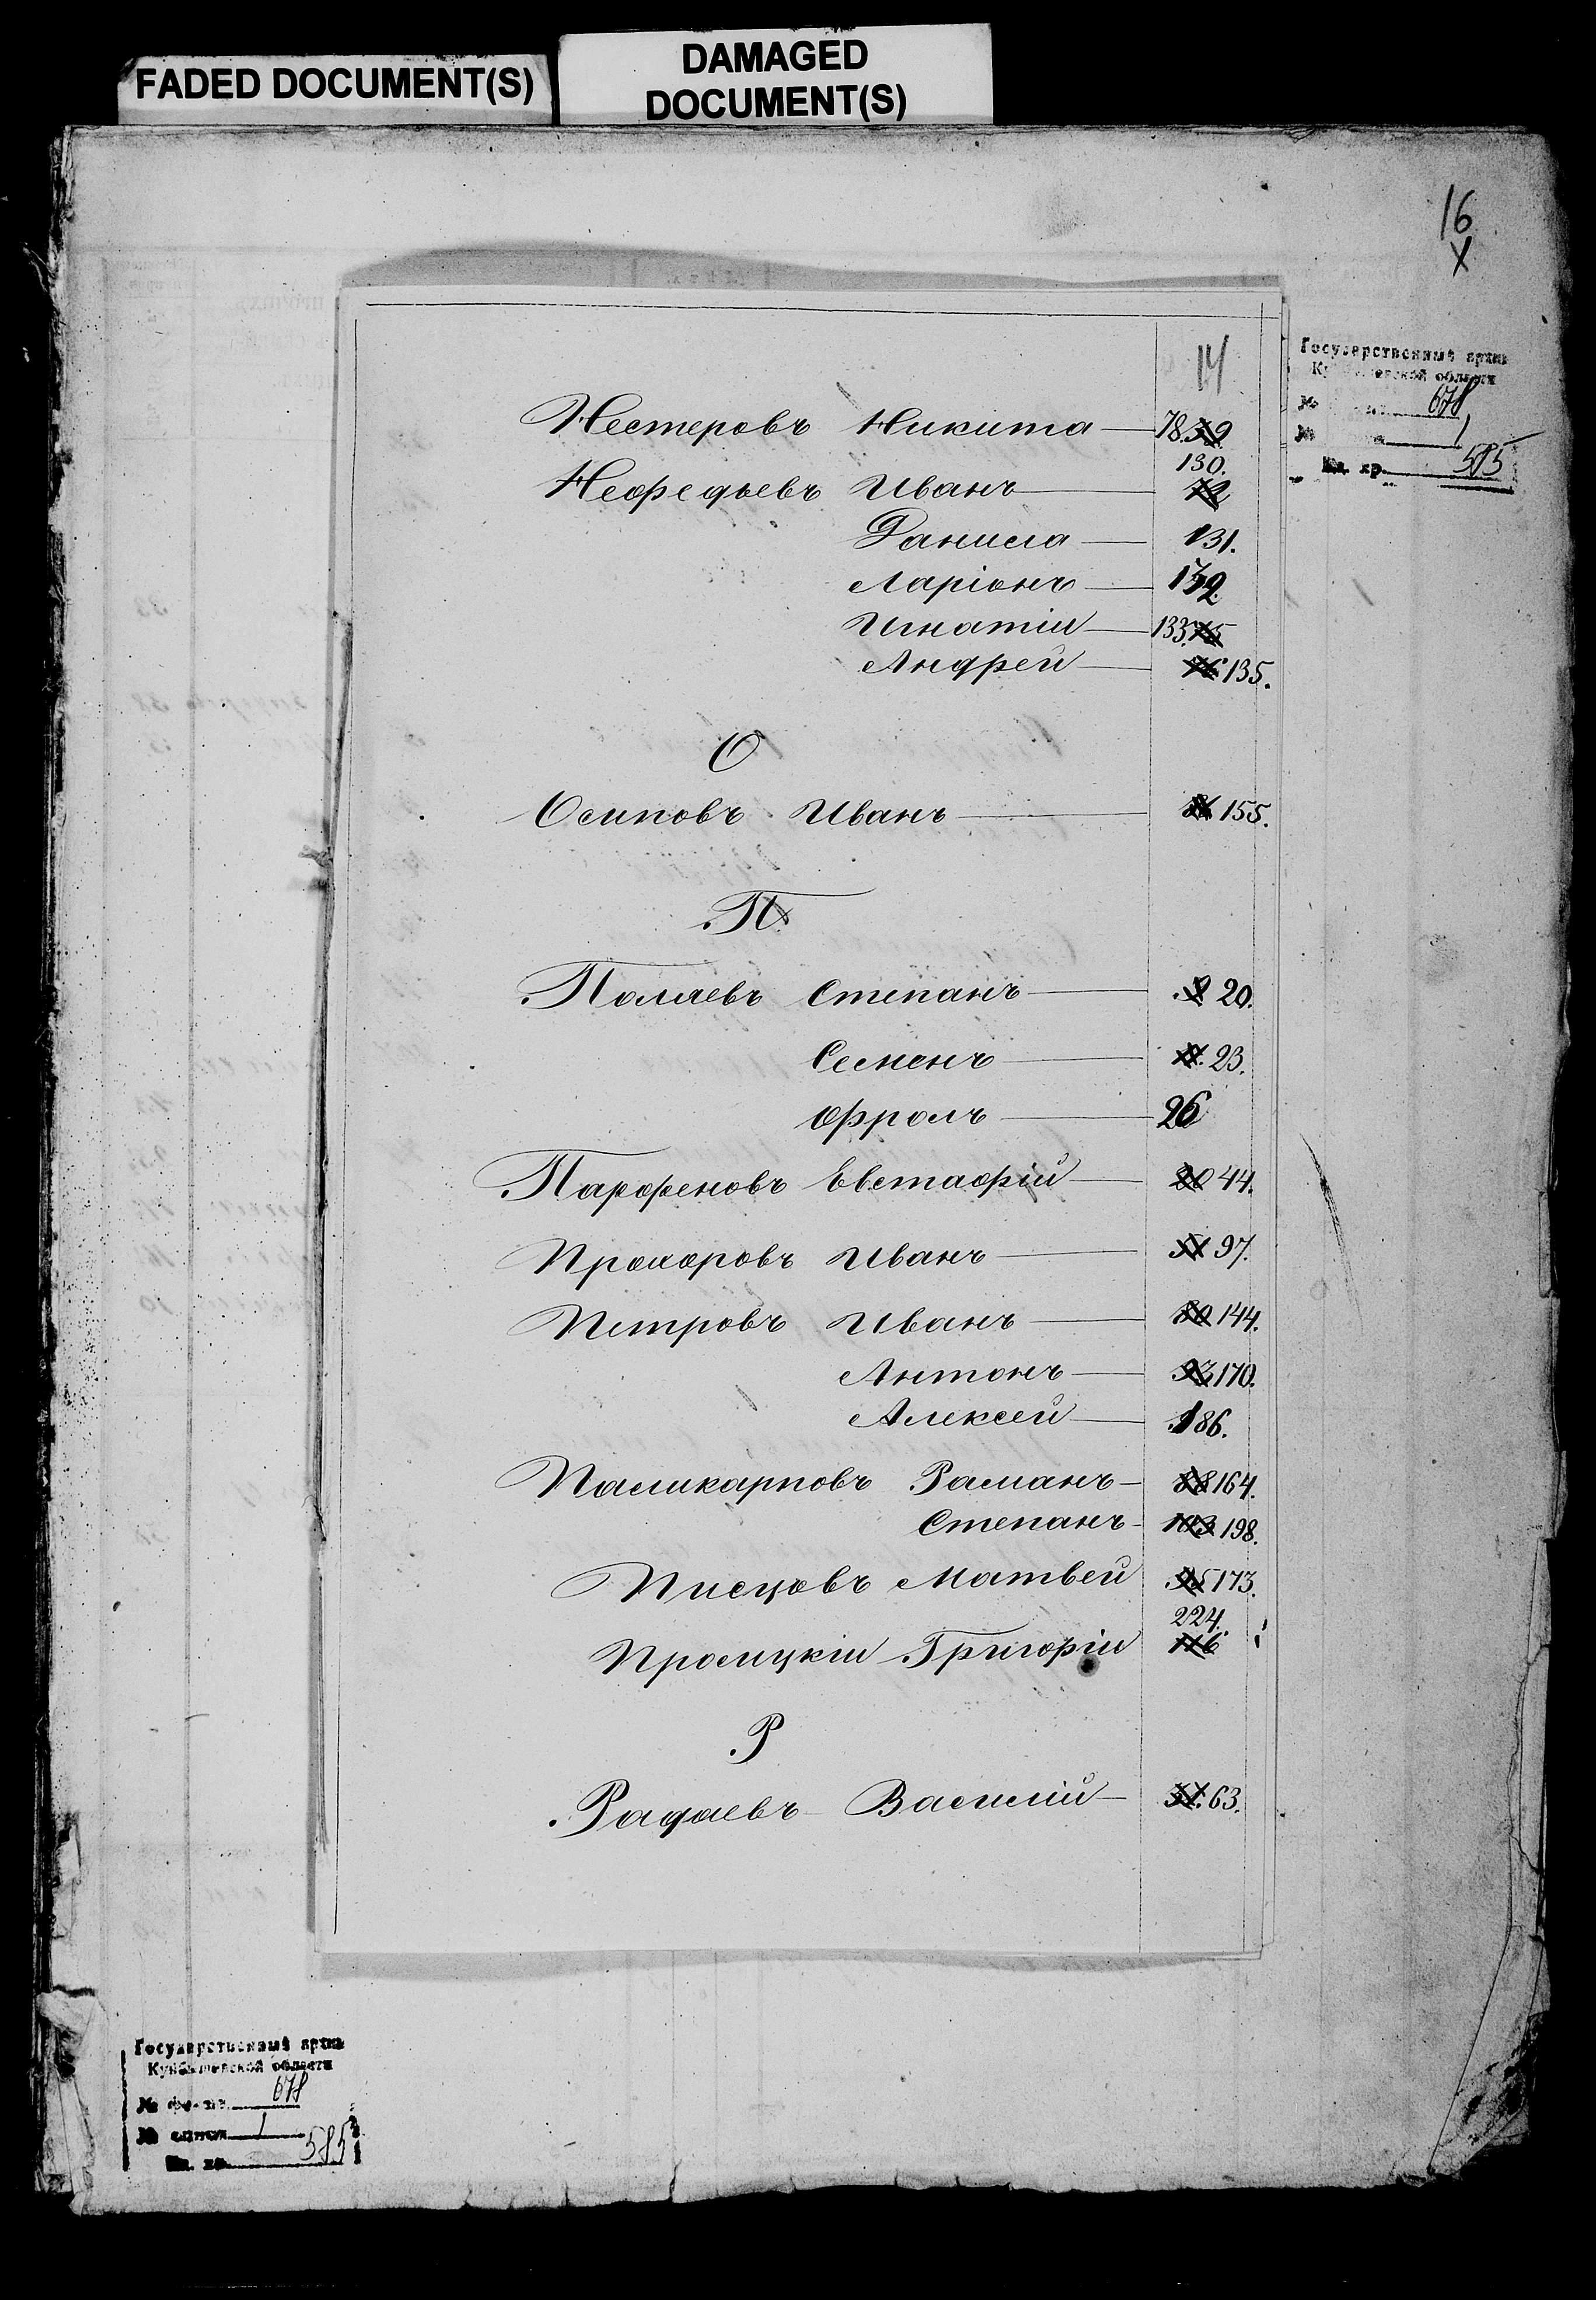 FADED DOCUMENT(S)
DAMAGED
DOCUMENT(S)
16
14
Государственный архив
Куйбышевской области
№ 678
№ 1
Ед. хр. 585
Нестеровъ Никита 78. 39
130.
Неофедьевъ Иванъ 72
Данила 131.
Ларіонъ 132.
Игнатіи 133. 75
Андрей 76 135.
О
Осиповъ Иванъ 155.
П.
Поляевъ Степанъ 20.
Семенъ 23.
Офролъ 26
Парфеновъ Евстафій 20 44.
Прохоровъ Иванъ 97.
Петровъ Иванъ 80 144.
Антонъ 93 170.
Алексей 186.
Паликарповъ Романъ 88 164.
Степанъ 103 198.
Писцовъ Матвей 95 173.
224.
Просицкіи Григоріи 116
Р
Радаевъ Василій 31. 63.
Государственный архив
Куйбышевской области
№ фонда 678
№ описи 1
Ед. хр. 585